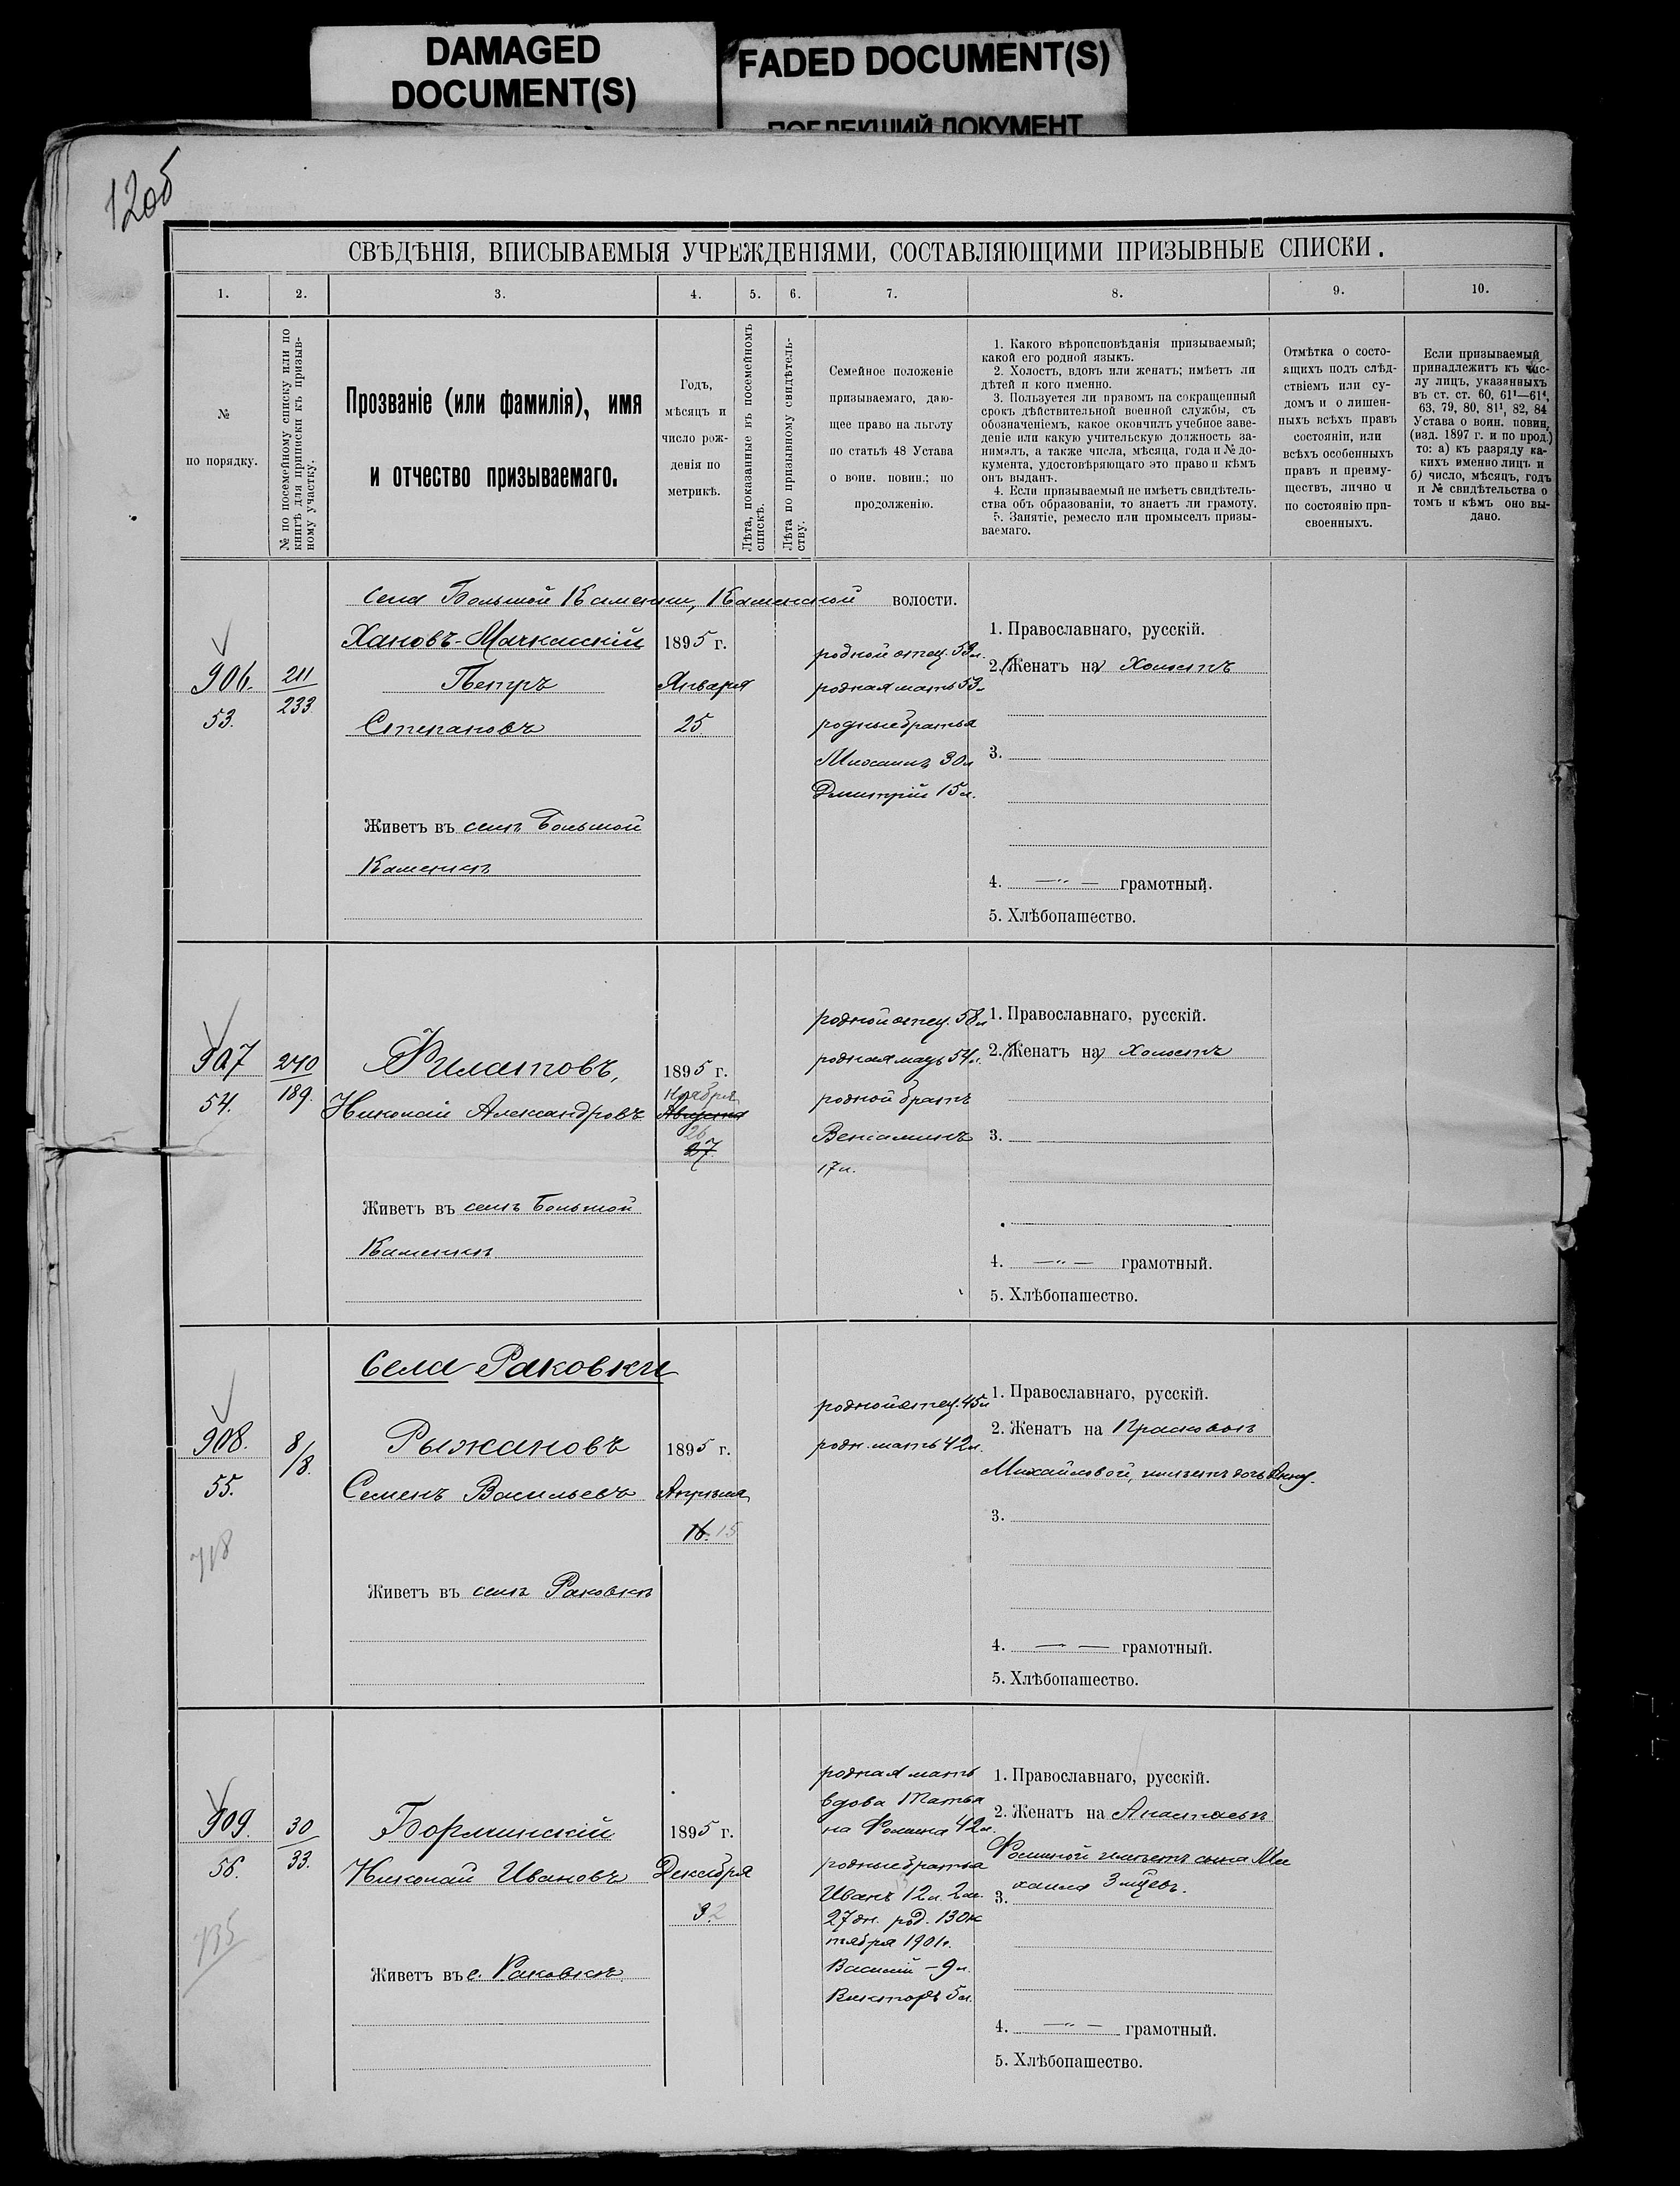 DAMAGED
DOCUMENT(S)
FADED DOCUMENT(S)
ПОБЛЕКШИЙ ДОКУМЕНТ
12об
СВѢДѢНІЯ, ВПИСЫВАЕМЫЯ УЧРЕЖДЕНІЯМИ, СОСТАВЛЯЮЩИМИ ПРИЗЫВНЫЕ СПИСКИ.
1. 2. 3. 4. 5. 6. 7. 8. 9. 10.
№
по порядку.
№ по посемейному списку или по
книгѣ для приписки къ призыв-
ному участку.
Прозваніе (или фамилія), имя
и отчество призываемаго.
Годъ,
мѣсяцъ и
число рож-
денія по
метрикѣ.
Лѣта, показанные въ посемейномъ
спискѣ.
Лѣта по призывному свидѣтель-
ству.
Семейное положеніе
призываемаго, даю-
щее право на льготу
по статьѣ 48 Устава
о воин. повин.; по
продолженію.
1. Какого вѣроисповѣданія призываемый;
какой его родной языкъ.
2. Холостъ, вдовъ или женатъ; имѣетъ ли
дѣтей и кого именно.
3. Пользуется ли правомъ на сокращенный
срокъ дѣйствительной военной службы, съ
обозначеніемъ, какое окончилъ учебное заве-
деніе или какую учительскую должность за-
нималъ, а также числа, мѣсяца, года и № до-
кумента, удостовѣряющаго это право и кѣмъ
онъ выданъ.
4. Если призываемый не имѣетъ свидѣтель-
ства объ образованіи, то знаетъ ли грамоту.
5. Занятіе, ремесло или промыселъ призы-
ваемаго.
Отмѣтка о состо-
ящихъ подъ слѣд-
ствіемъ или су-
домъ и о лишен-
ныхъ всѣхъ правъ
состоянія, или
всѣхъ особенныхъ
правъ и преиму-
ществъ, лично и
по состоянію при-
своенныхъ.
Если призываемый
принадлежитъ къ чис-
лу лицъ, указанныхъ
въ ст. ст. 60, 61¹—61⁴,
63, 79, 80, 81¹, 82, 84
Устава о воин. повин.
(изд. 1897 г. и по прод.)
то: а) къ разряду ка-
кихъ именно лицъ и
б) число, мѣсяцъ, годъ
и № свидѣтельства о
томъ и кѣмъ оно вы-
дано.
Села Большой Каменки, Каменской волости.
906.
53.
211
233
Хановъ-Мачкасскій
Петръ
Степановъ
Живетъ въ селѣ Большой
Каменкѣ
1895 г.
Января
25
родной отец. 59 л.
родная мать 53 л.
родные братья
Михаилъ 30 л
Дмитрій 15 л.
1. Православнаго, русскій.
2. (Женатъ на) Холостъ
3.
4. —"— грамотный.
5. Хлѣбопашество.
907
54.
240
189.
Филатовъ,
Николай Александровъ
Живетъ въ селѣ Большой
Каменкѣ
1895 г.
Ноября
Августа
26
27.
родной отец. 58 л
родная мать 54 л.
родной братъ
Веніаминъ
17 л.
1. Православнаго, русскій.
2. (Женатъ на) Холостъ
3.
4. —"— грамотный.
5. Хлѣбопашество.
Села Раковки
908.
55.
718
8/8.
Рыжановъ
Семенъ Васильевъ
Живетъ въ селѣ Раковкѣ
1895 г.
Апрѣля
16. 15
родной отец. 45 л
родн. мать 42 л.
1. Православнаго, русскій.
2. Женатъ на Прасковьѣ
Михайловой, имѣетъ дочь Анну.
3.
4. — — грамотный.
5. Хлѣбопашество.
909.
56.
735
30
33.
Борминскій
Николай Ивановъ
Живетъ въ с. Раковкѣ
1895 г.
Декабря
3 2
родная мать
вдова Татья
на Фомина 42 л.
родные братья
Иванъ 12 л. 2 м.
27 дн. род. 13 Ок
тября 1901 г.
Василій - 9 л.
Викторъ 5 л.
1. Православнаго, русскій.
2. Женатъ на Анастасьѣ
Фоминой имѣетъ сына Ми
хаила 3 мѣсъ.
3.
4. —"— грамотный.
5. Хлѣбопашество.